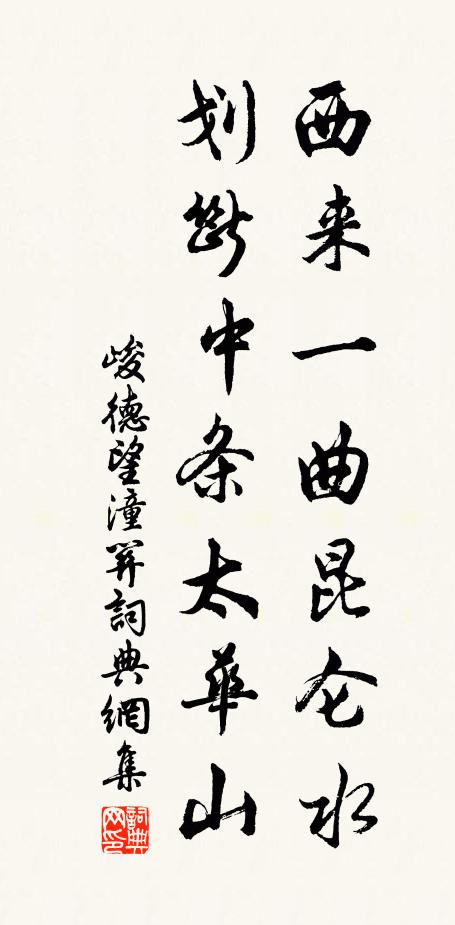 西来一曲昆仑水
划断中条太华山
峻德望潼关詞典網集
詞典网印